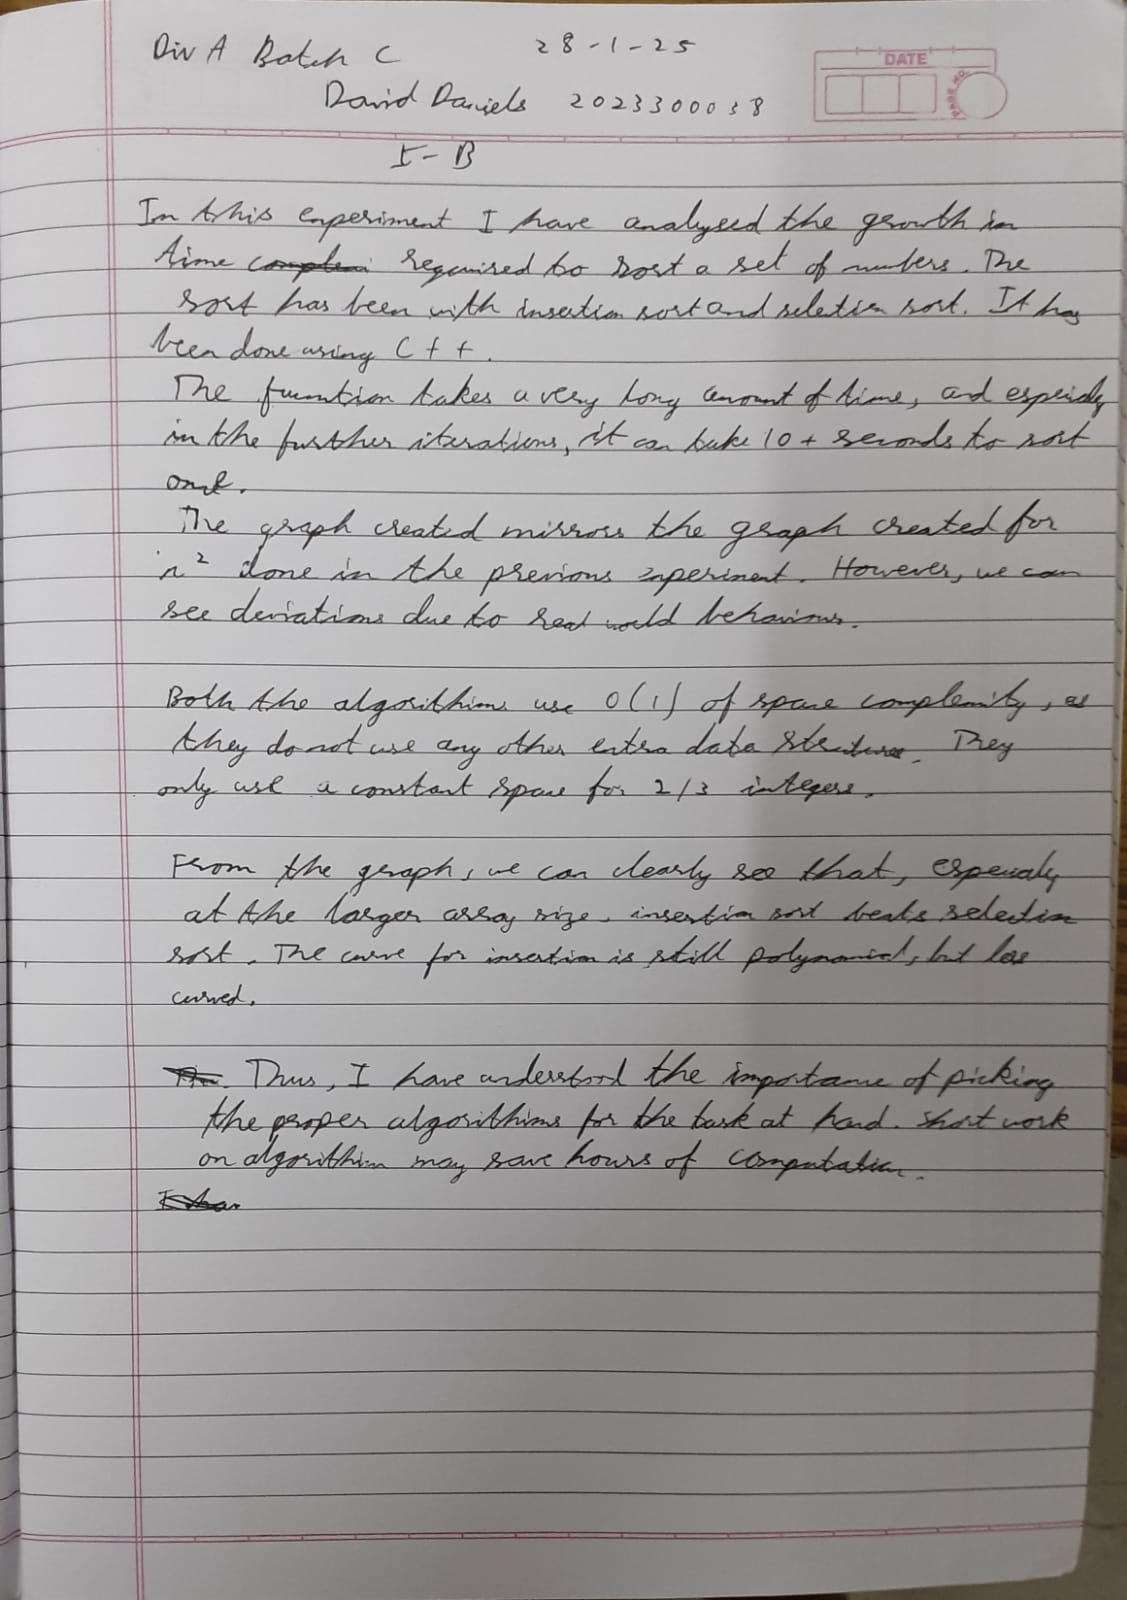 Div A Batch C 28-1-25
DATE
PAGE NO.
David Daniels 2023300038
I-B
In this experiment I have analysed the growth in
time complexi required to sort a set of numbers. The
sort has been with insertion sort and seletion sort. It has
been done using C++.
The function takes a very long amount of time, and especialy
in the further iterations, it can take 10+ seconds to sort
one.
The graph created mirrors the graph created for
n² done in the previous experiment. However, we can
see deviations due to real world behaviour.
Both the algorithms use O(1) of space complexity, as
they do not use any other extra data structures. They
only use a constant space for 2/3 integers.
From the graph, we can clearly see that, especialy
at the larger array size, insertion sort beats selection
sort. The curve for insertion is still polynomial, but less
curved.
Thus, I have understood the importance of picking
the proper algorithims for the task at hand. Short work
on algorithim may save hours of computation.